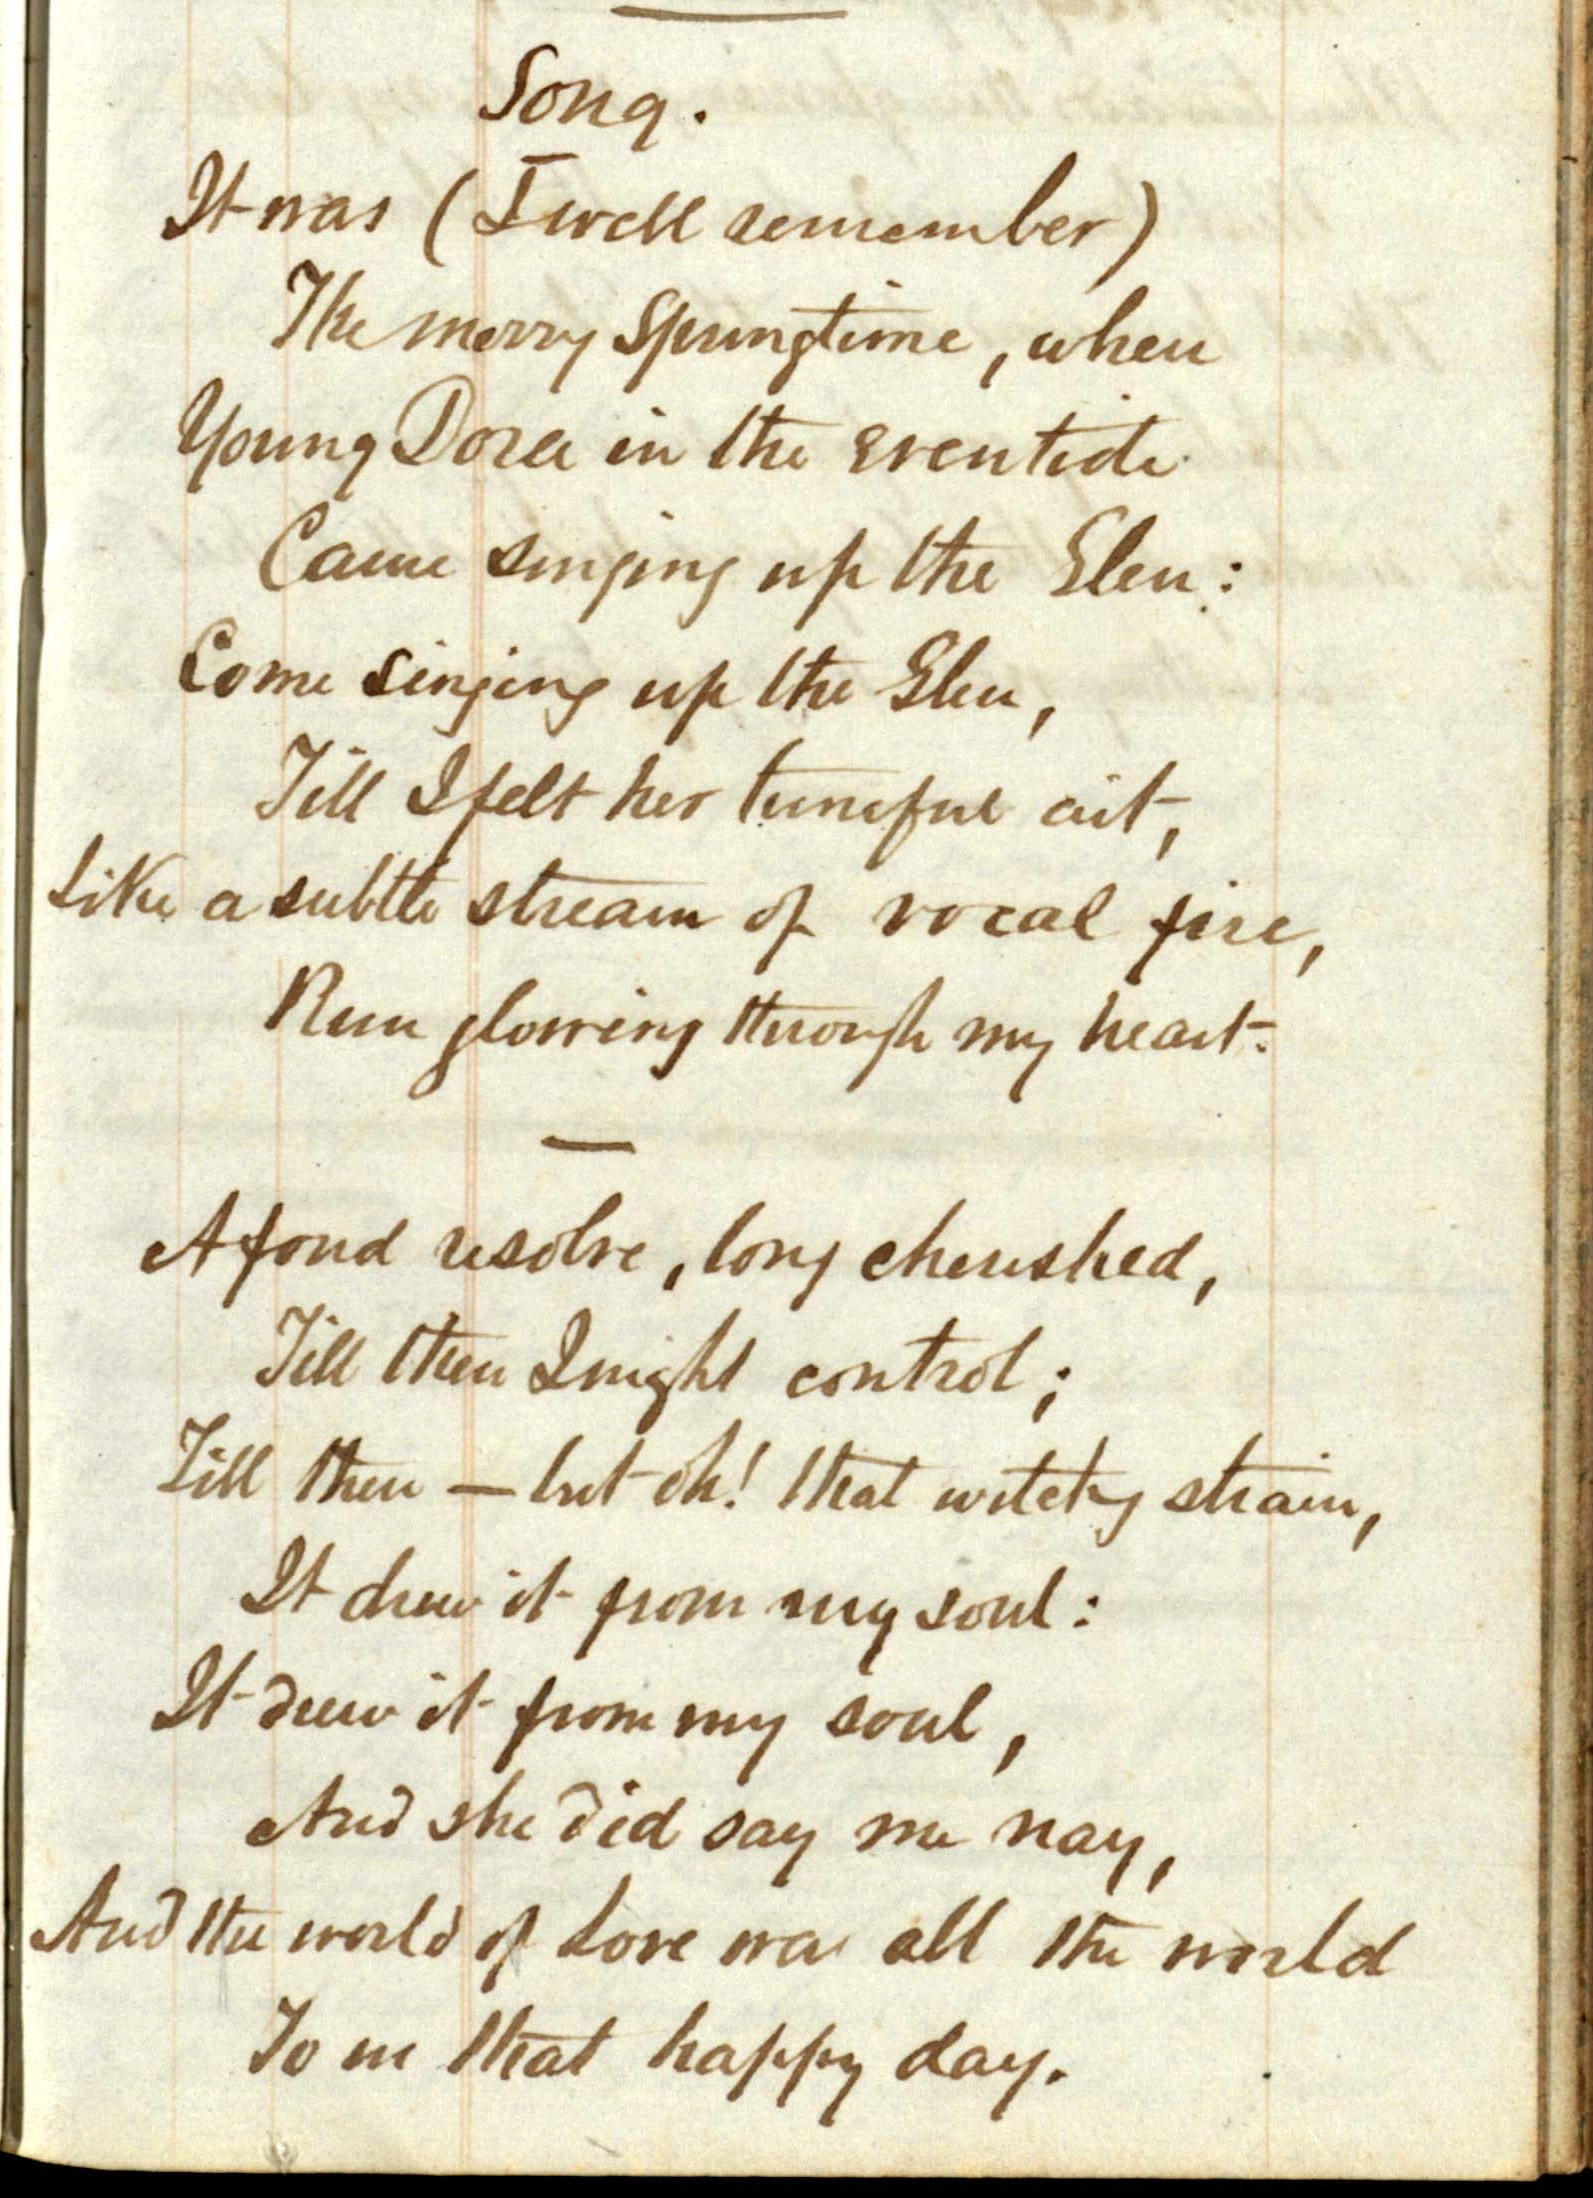 Song.
It was (I well remember)
The merry Springtime, when
Young Dora in the eventide
Came singing up the Glen:
Come singing up the Glen,
Till I felt her tuneful art,
Like a subtle stream of vocal fire,
Run glowing through my heart.
A fond resolve, long cherished,
Till then I might control;
Till then — but oh! that witchy strain,
It drew it from my soul:
It drew it from my soul,
And she did say me nay,
And the world of Love was all the world
To me that happy day.